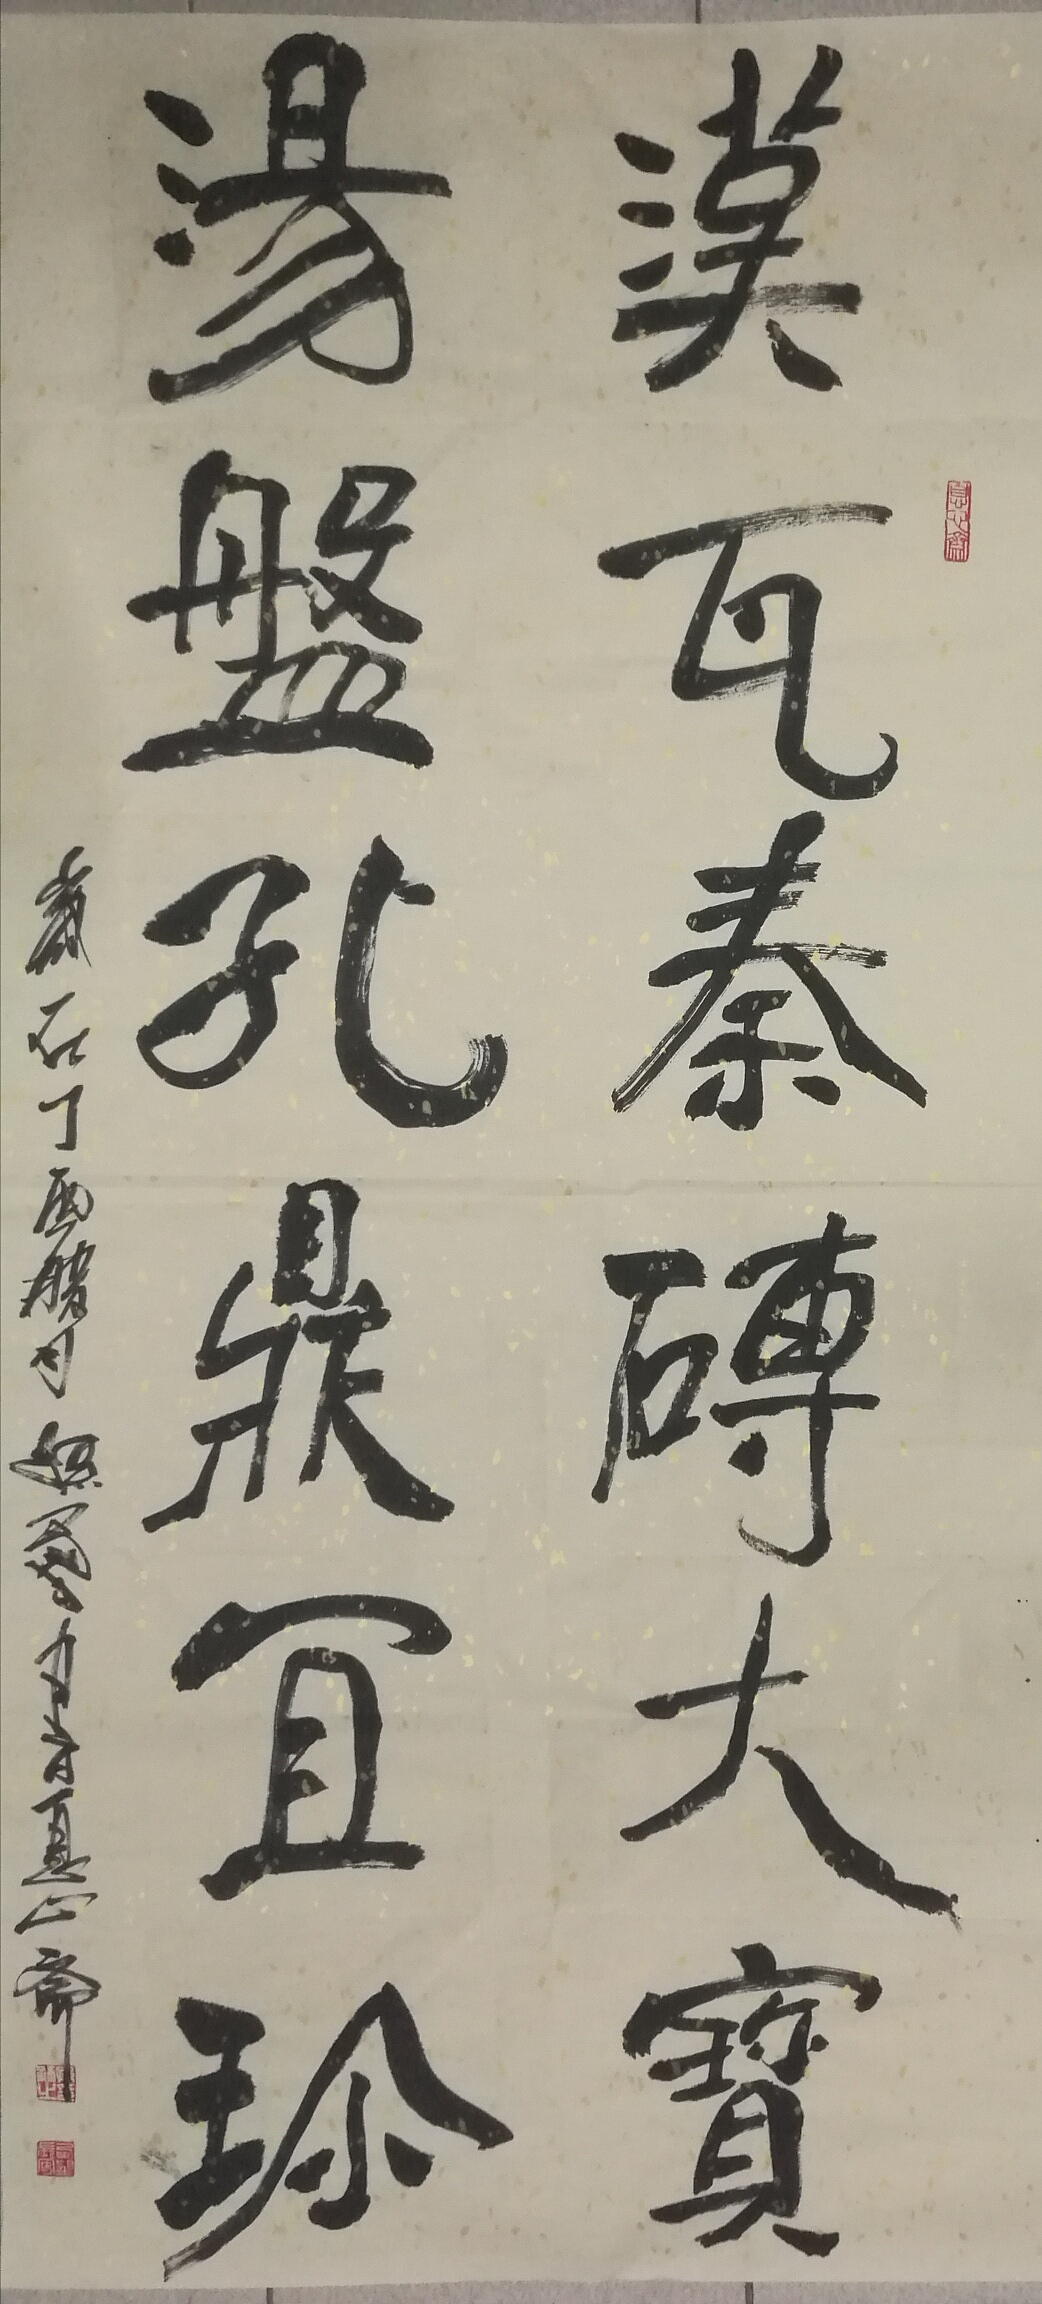 漢瓦秦磚大寶
湯盤孔鼎宜珍
歲在丁酉臘月孫
息心齋